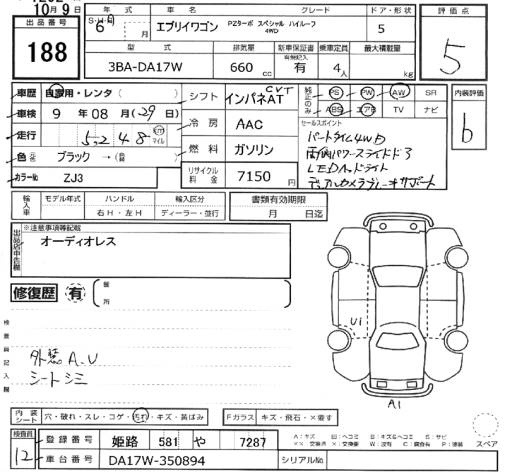 10月9日
出品番号
188
年式
車名
グレード
ドア・形状
評価点
6
エブリイワゴン
PZターボ スペシャル ハイルーフ
4WD
5
5
型式
排気量
新車保証書
有無記入
乗車定員
最大積載量
3BA-DA17W
660 cc
有
4人
kg
車歴 自家用・レンタ(
車検 9年 08月(29日)
走行 52248
色 ブラック →(
カラーNo ZJ3
シフト インパネAT CVT
冷房 AAC
燃料 ガソリン
リサイクル料金 7150円
純正のみ
PS PW AW SR
ABS エアB TV ナビ
セールスポイント
パートタイム4WD
両側パワースライドドア
LEDヘッドライト
デュアルカメラブレーキサポート
内装評価
b
輸入車
モデル年式 ハンドル 輸入区分
右H・左H ディーラー・並行
書類有効期限
月 日迄
出品店申告欄
※注意事項等記載
オーディオレス
修復歴 有
箇所
検査員記入欄
外装A.U
シートシミ
U1
A1
内装シート
穴・破れ・スレ・コゲ・汚れ・キズ・黄ばみ
Fガラス キズ・飛石・×要す
検査員
12
登録番号 姫路 581 や 7287
車台番号 DA17W-350894
シリアルNo.
A:キズ
スペア